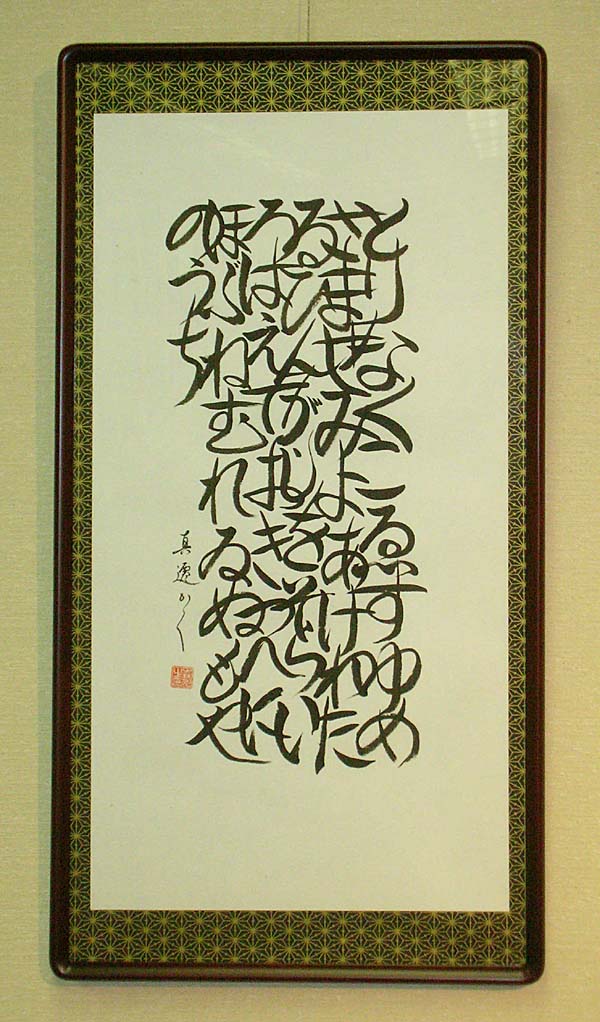 とりなくこゑすゆめ
さませみよあけわた
るひんがしをそらい
ろはえておきつへに
ほぶねむれゐぬもや
のうち
かく